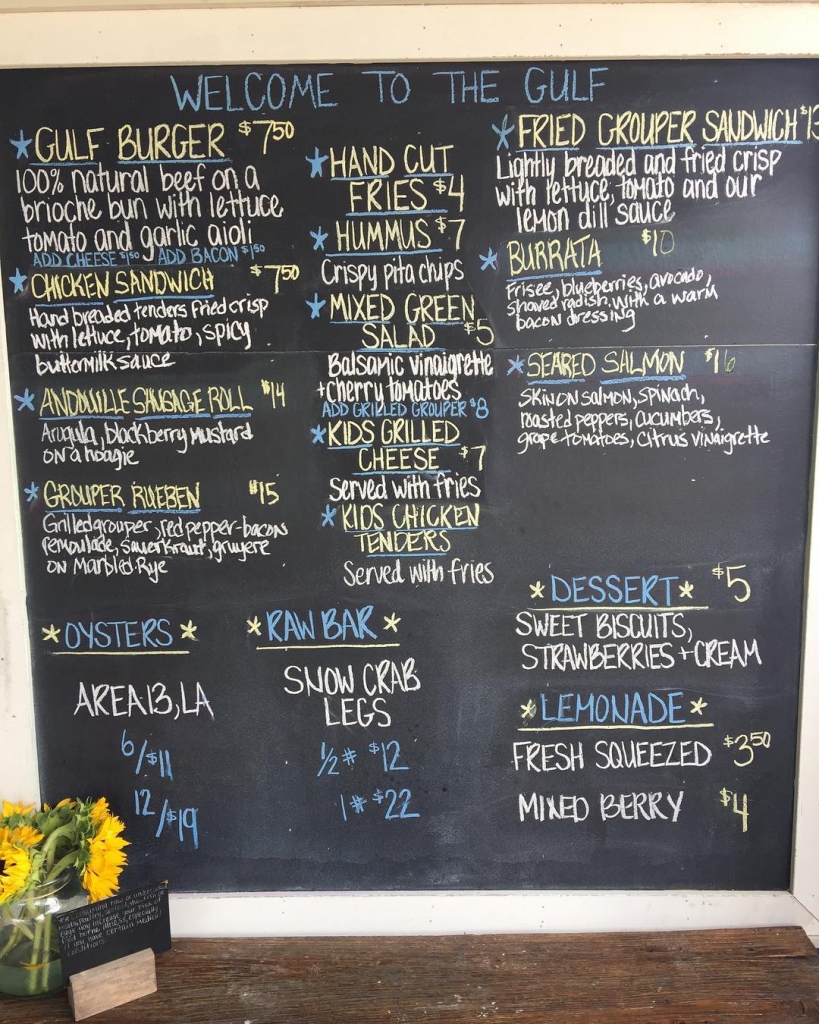 WELCOME TO THE GULF
*GULF BURGER $7.50
100% natural beef on a
brioche bun with lettuce
tomato and garlic aioli
ADD CHEESE $1.50 ADD BACON $1.50
*CHICKEN SANDWICH $7.50
Hand breaded tenders fried crisp
with lettuce, tomato, spicy
buttermilk sauce
*ANDOUILLE SAUSAGE ROLL $14
Arugula, blackberry mustard
on a hoagie
*GROUPER RUEBEN $15
Grilled grouper, red pepper-bacon
remoulade, sauerkraut, gruyere
on Marbled Rye
*HAND CUT
FRIES $4
*HUMMUS $7
Crispy pita chips
*MIXED GREEN
SALAD $5
Balsamic vinaigrette
+cherry tomatoes
ADD GRILLED GROUPER $8
*KIDS GRILLED
CHEESE $7
Served with fries
*KIDS CHICKEN
TENDERS
Served with fries
*FRIED GROUPER SANDWICH $13
Lightly breaded and fried crisp
with lettuce, tomato and our
lemon dill sauce
*BURRATA $10
Frisee, blueberries, avocado,
shaved radish with a warm
bacon dressing
*SEARED SALMON $16
SKIN ON SALMON, SPINACH,
roasted peppers, cucumbers,
grape tomatoes, citrus vinaigrette
*OYSTERS*
AREA 13, LA
6/$11
12/$19
*RAW BAR*
SNOW CRAB
LEGS
1/2# $12
1# $22
*DESSERT* $5
SWEET BISCUITS,
STRAWBERRIES + CREAM
*LEMONADE*
FRESH SQUEEZED $3.50
MIXED BERRY $4
consuming raw or undercooked
eggs may increase your risk of
food borne illness, especially
if you have certain medical
conditions